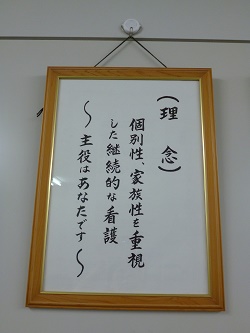 （理念）
個別性、家族性を重視
した継続的な看護
〜主役はあなたです〜